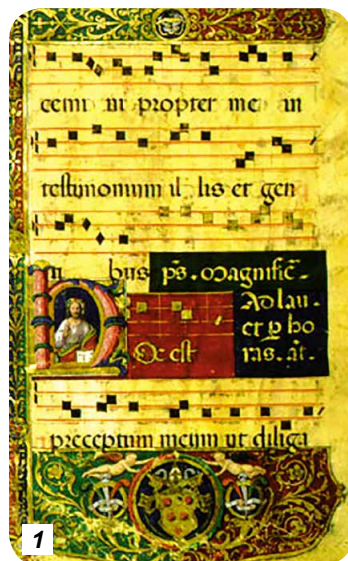 cemi ni propter me in
testimonium il lis et gen
ti bus ps. Magnific̄.
Ad lau.
et ꝑ ho
ras. añ.
HOc est
preceptum meum ut diliga
1